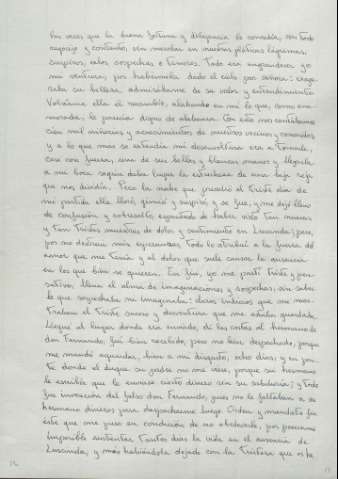 las veces que la buena fortuna y diligencia lo concedía, con todo
regocijo y contento, sin mezclar en nuestras pláticas lágrimas,
suspiros, celos, sospechas o temores. Todo era engrandecer yo
mi ventura, por habérmela dado el cielo por señora: exage-
raba su belleza, admirábame de su valor y entendimiento
Volvíame ella el recambio, alabando en mí lo que, como ena-
morada, le parecía digno de alabanza. Con esto nos contábamos
cien mil niñerías y acaecimientos de nuestros vecinos y conocidos
y a lo que más se extendía mi desenvoltura era a tomarle,
casi por fuerza, una de sus bellas y blancas manos y llegarla
a mi boca según daba lugar la estrecheza de una baja reja
que nos dividía. Pero la noche que precedió al triste día de
mi partida ella lloró, gimió y suspiró, y se fue, y me dejó lleno
de confusión y sobresalto, espantado de haber visto tan nuevas
y tan tristes muestras de dolor y sentimiento en Luscinda; pero,
por no destruir mis esperanzas, todo lo atribuí a la fuerza del
amor que me tenía y al dolor que suele causar la ausencia
en los que bien se quieren. En fin, yo me partí triste y pen-
sativo, llena el alma de imaginaciones y sospechas, sin saber
lo que sospechaba ni imaginaba: claros indicios que me mos-
traban el triste suceso y desventura que me estaba guardada
Llegué al lugar donde era enviado, di las cartas al hermano de
don Fernando, fui bien recibido, pero no bien despachado, porque
me mandó aguardar, bien a mi disgusto, ocho días, y en par-
te donde el duque su padre no me viese, porque su hermano
le escribía que le enviase cierto dinero sin su sabiduría; y todo
fue invención del falso don Fernando, pues no le faltaban a su
hermano dineros para despacharme luego. Orden y mandato fue
éste que me puso en condición de no obedecerle, por parecerme
imposible sustentar tantos días la vida en el ausencia de
Luscinda, y más habiéndola dejado con la tristeza que os he